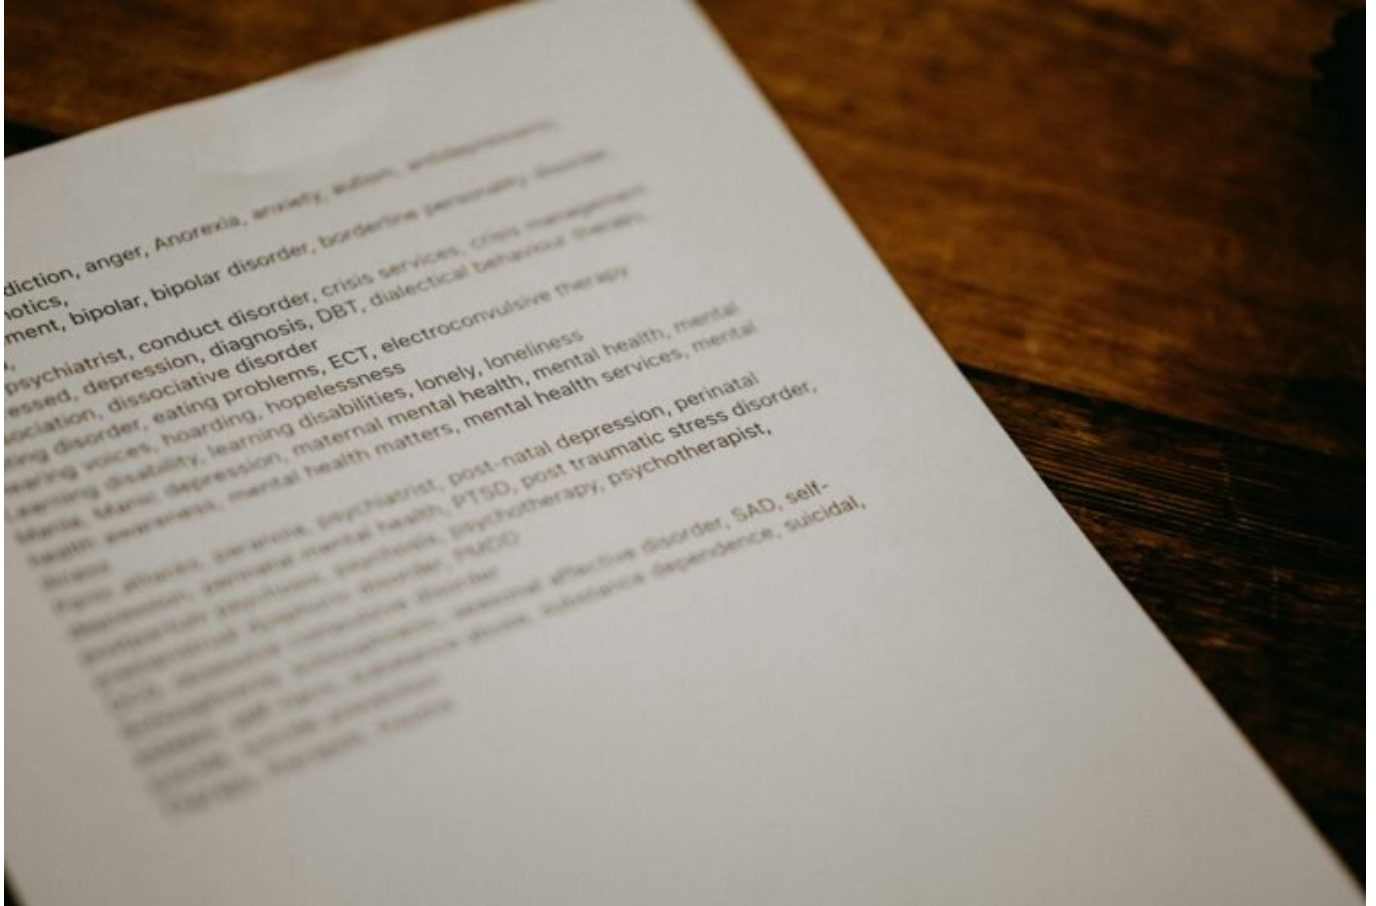 diction, anger, Anorexia, anxiety, autism, antidepressants,
hotics,
ment, bipolar, bipolar disorder, borderline personality disorder
psychiatrist, conduct disorder, crisis services, crisis management
essed, depression, diagnosis, DBT, dialectical behaviour therapy,
sociation, dissociative disorder
ing disorder, eating problems, ECT, electroconvulsive therapy
earing voices, hoarding, hopelessness
Learning disability, learning disabilities, lonely, loneliness
Mania, Manic depression, maternal mental health, mental health, mental
health awareness, mental health matters, mental health services, mental
illness
Panic attacks, paranoia, psychiatrist, post-natal depression, perinatal
depression, perinatal mental health, PTSD, post traumatic stress disorder,
postpartum psychosis, psychosis, psychotherapy, psychotherapist,
premenstrual dysphoric disorder, PMDD
OCD, obsessive compulsive disorder
schizophrenia, seasonal affective disorder, SAD, self-
self harm, substance abuse, substance dependence, suicidal,
suicide, suicide prevention
Therapy, therapist, trauma